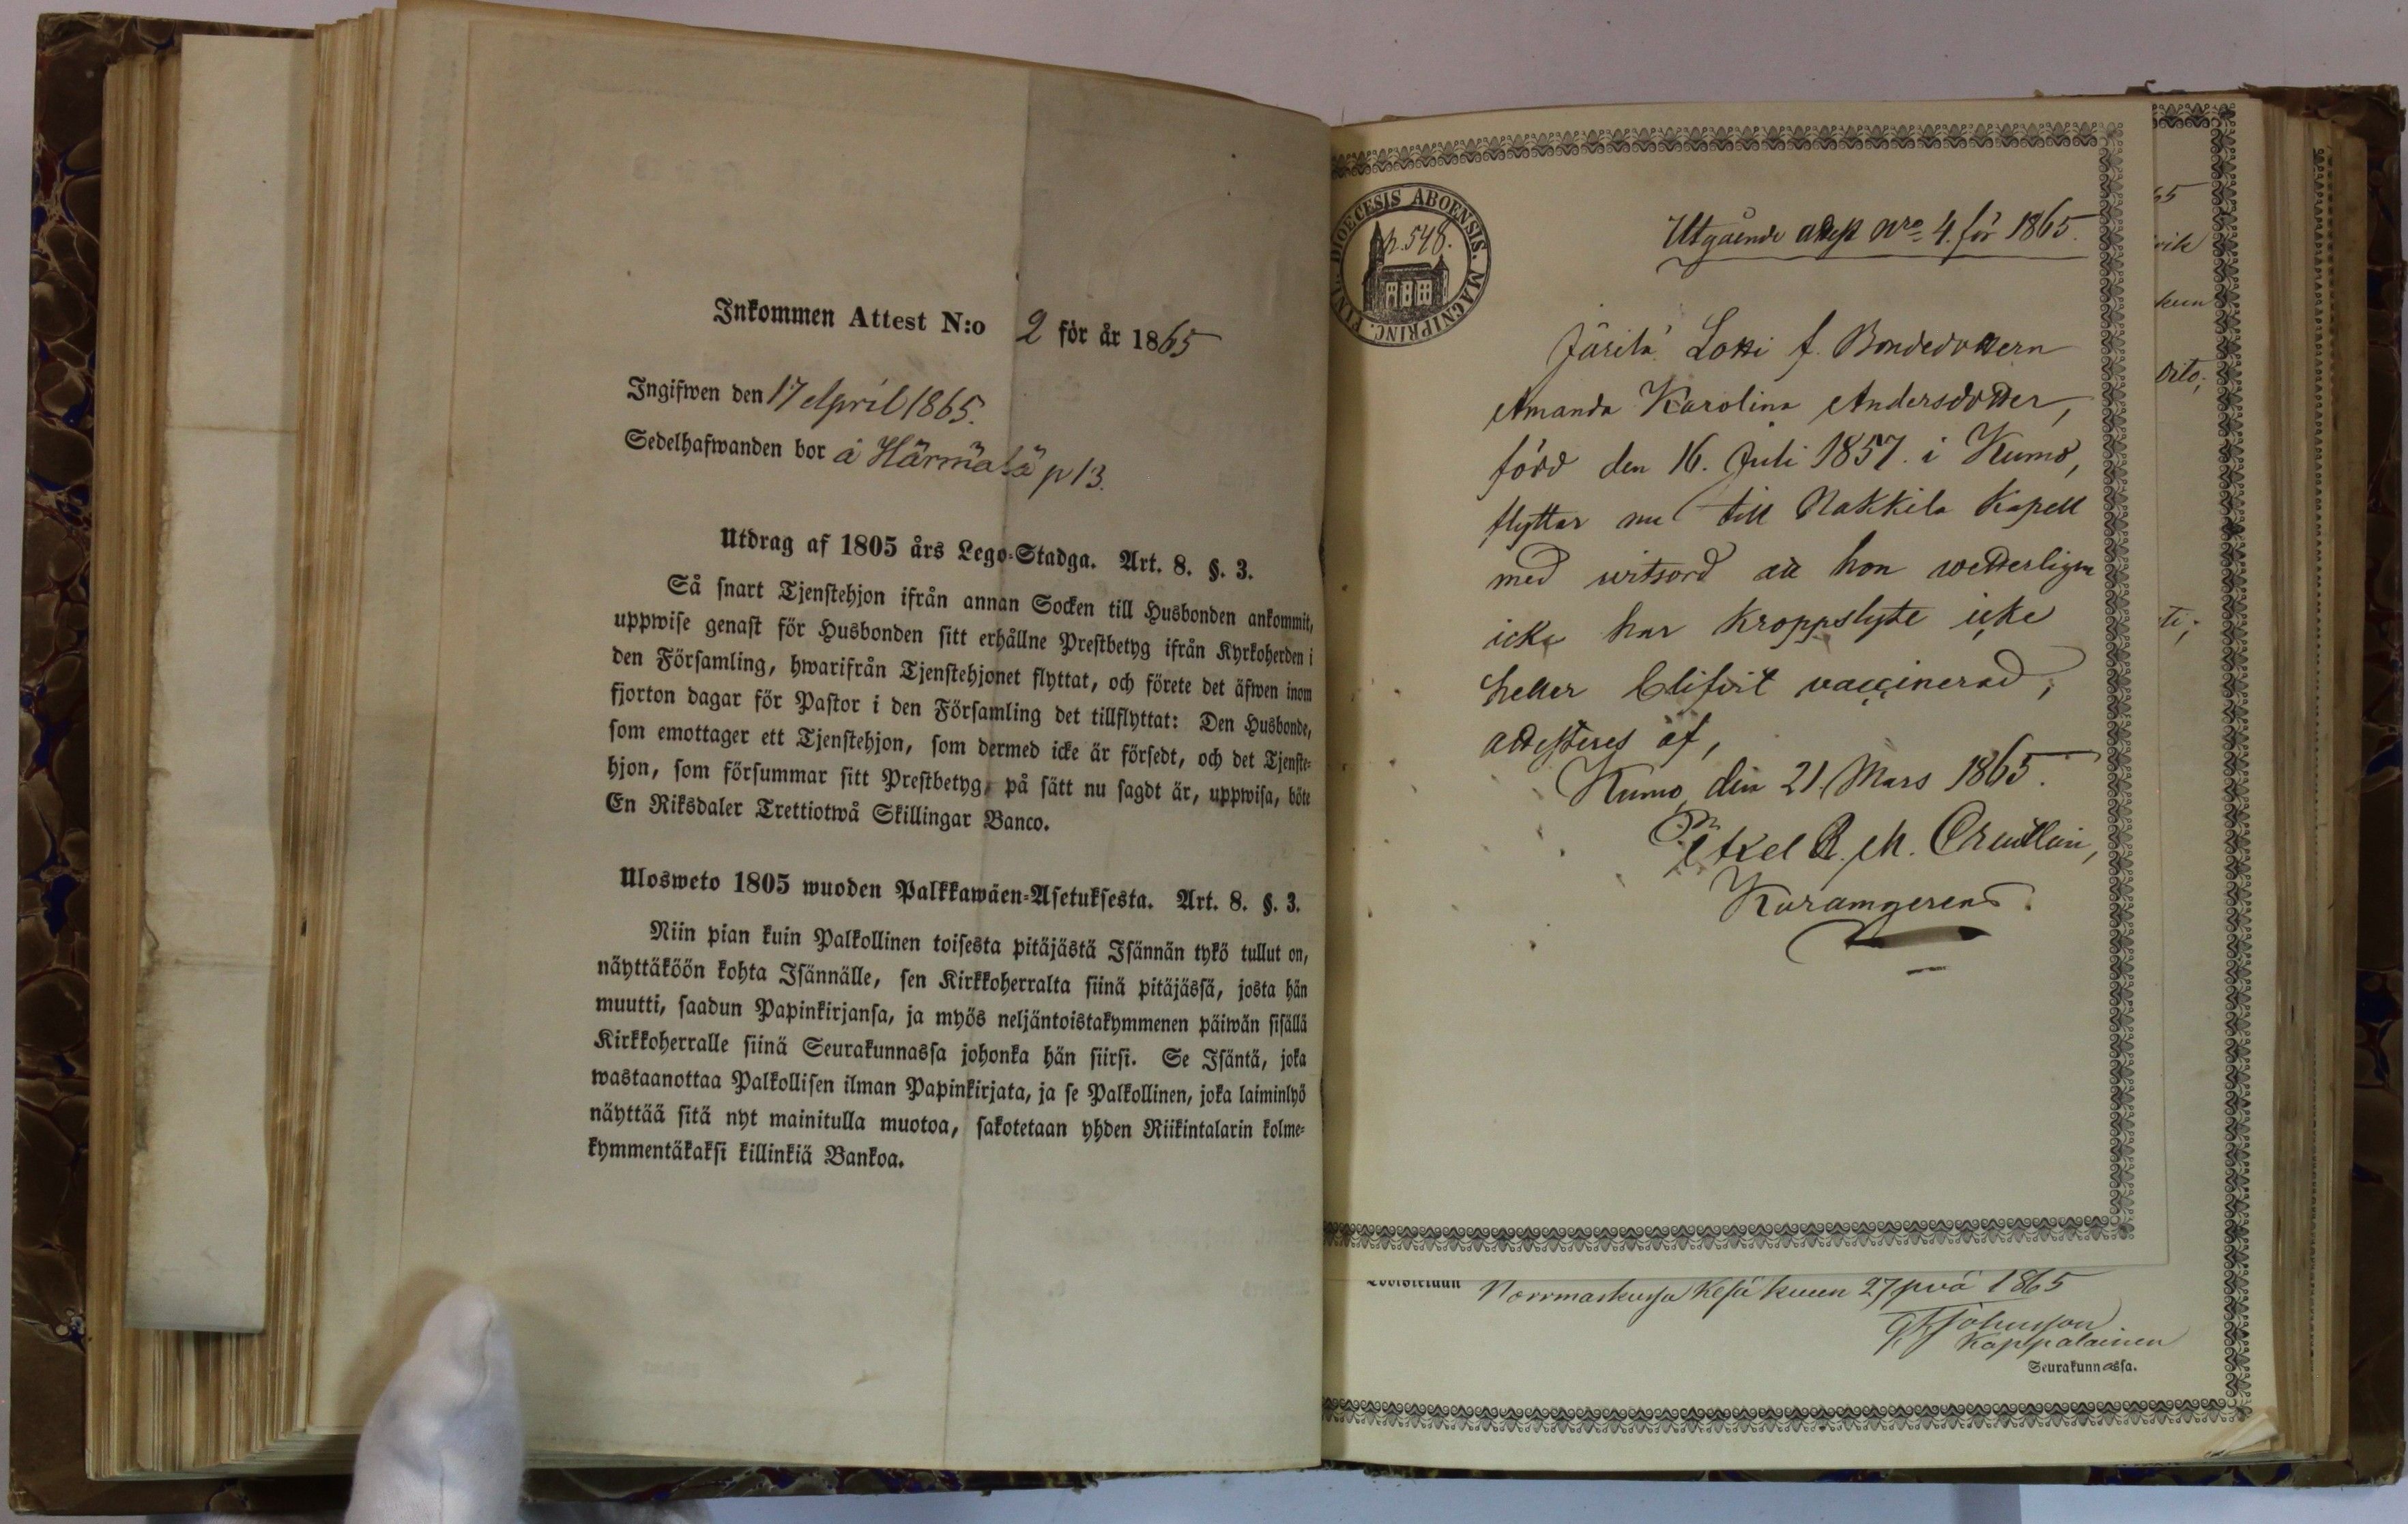 Inkommen Attest N:o 2 för år 1865
Ingifwen den 17 April 1865.
Sedelhafwanden bor å Härmälä p 13.
Utdrag af 1805 års Lego-Stadga. Art. 8. §. 3.
Så snart Tjenstehjon ifrån annan Socken till Husbonden ankommit,
uppwise genast för Husbonden sitt erhållne Prestbetyg ifrån Kyrkoherden i
den Församling, hwarifrån Tjenstehjonet flyttat, och förete det äfwen inom
fjorton dagar för Pastor i den Församling det tillflyttat: Den Husbonde,
som emottager ett Tjenstehjon, som dermed icke är försedt, och det Tjenste-
hjon, som försummar sitt Prestbetyg, på sätt nu sagdt är, uppwisa, böte
En Riksdaler Trettiotwå Skillingar Banco.
Ulosweto 1805 wuoden Palkkawäen-Asetuksesta. Art. 8. §. 3.
Niin pian kuin Palkollinen toisesta pitäjästä Isännän tykö tullut on,
näyttäköön kohta Isännälle, sen Kirkkoherralta siinä pitäjässä, josta hän
muutti, saadun Papinkirjansa, ja myös neljäntoistakymmenen päiwän sisällä
Kirkkoherralle siinä Seurakunnassa johonka hän siirsi. Se Isäntä, joka
wastaanottaa Palkollisen ilman Papinkirjata, ja se Palkollinen, joka laiminlyö
näyttää sitä nyt mainitulla muotoa, sakotetaan yhden Riikintalarin kolme-
kymmentäkaksi killinkiä Bankoa.
DIOECESIS ABOENSIS. MAGNIPRINC. FINL.
p. 548.
Utgående attest Nro 4. för 1865.
Järilä Lotti f. Bondedottern
Amanda Karolina Andersdotter,
född den 16. Juli 1857. i Kumo,
flyttar nu till Nakkila Kapell
med witsord att hon wetterligen
icke har kroppslyte icke
heller blifvit vaccinerad;
attesteres af,
Kumo, den 21 Mars 1865.
R. M.
65
kun
Dito;
ti;
Norrmarkussa Kesä kuun 27 pvä 1865
Johnsson
Kappalainen
Seurakunnassa.